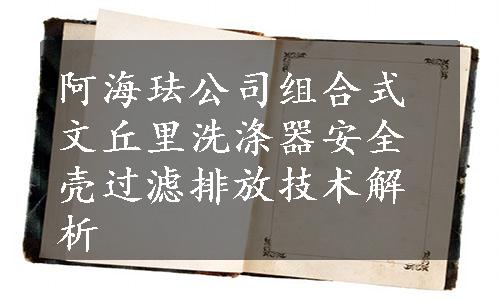 阿海珐公司组合式
文丘里洗涤器安全
壳过滤排放技术解
析